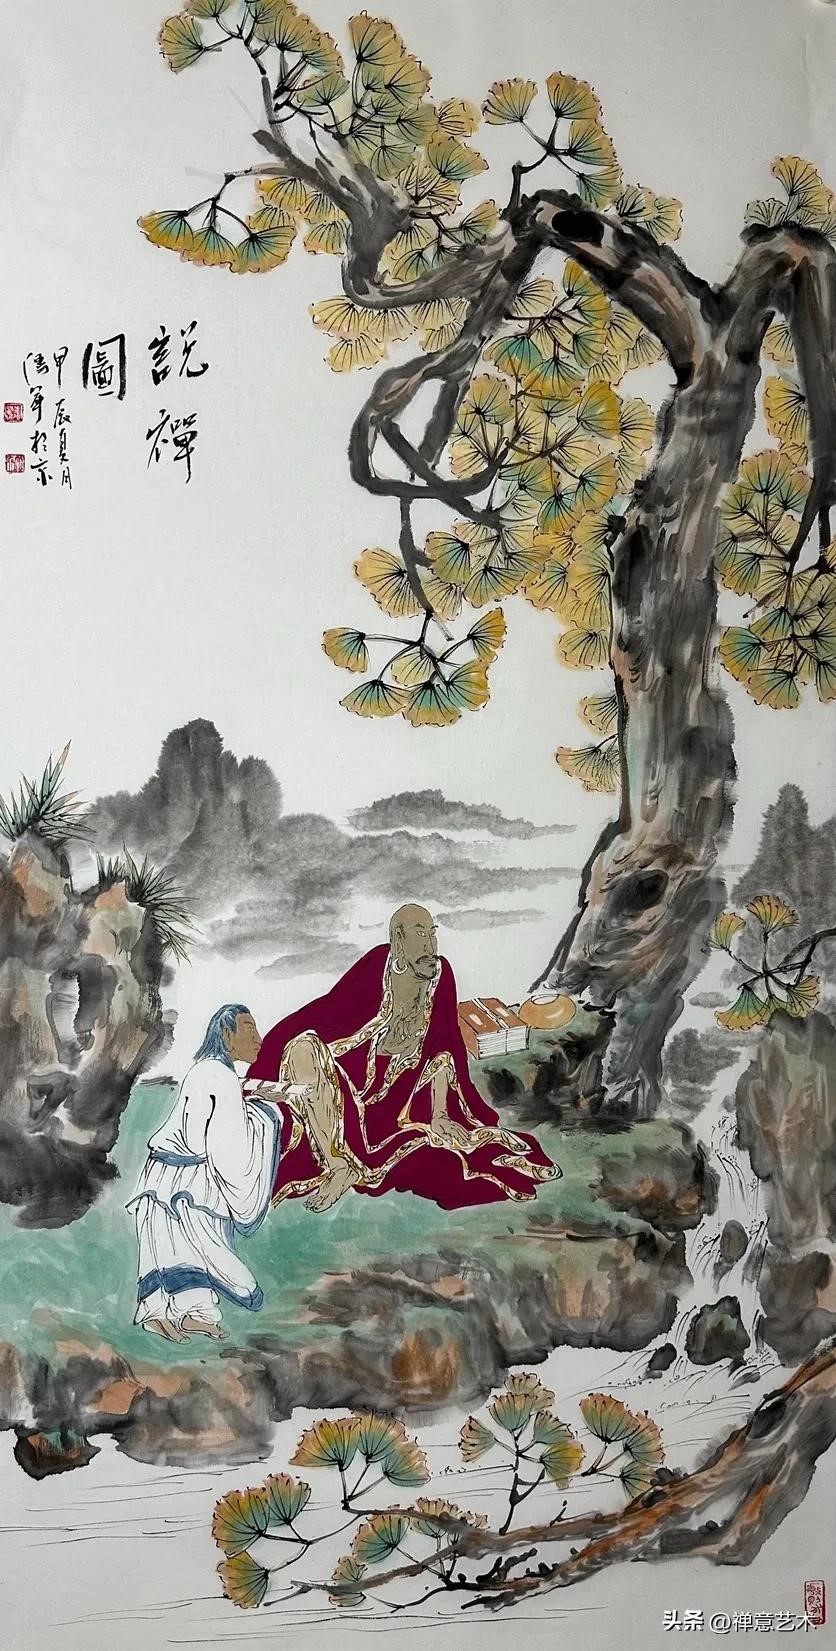 說禪
圖
甲辰夏月
濤軍於京
头条 @禅意艺术